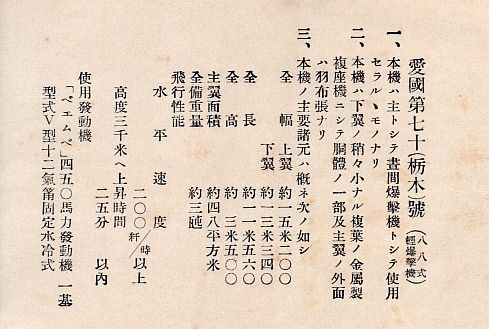 愛國第七十(栃木號)(八八式輕爆擊機)
一、本機ハ主トシテ晝間爆擊機トシテ使用
セラルヽモノナリ
二、本機ハ下翼ノ稍々小ナル複葉ノ金屬製
複座機ニシテ胴體ノ一部及主翼ノ外面
ハ羽布張ナリ
三、本機ノ主要諸元ハ槪ネ次ノ如シ
全幅 上翼 約一五米二〇〇
下翼 約一三米三四〇
全長 約一一米五六〇
全高 約三米五〇〇
主翼面積 約四八平方米
全備重量 約三瓲
飛行性能
水平速度 二〇〇粁/時以上
高度三千米ヘ上昇時間
二五分以內
使用發動機
「ベエムベ」四五〇馬力發動機 一基
型式V型十二氣筩固定水冷式